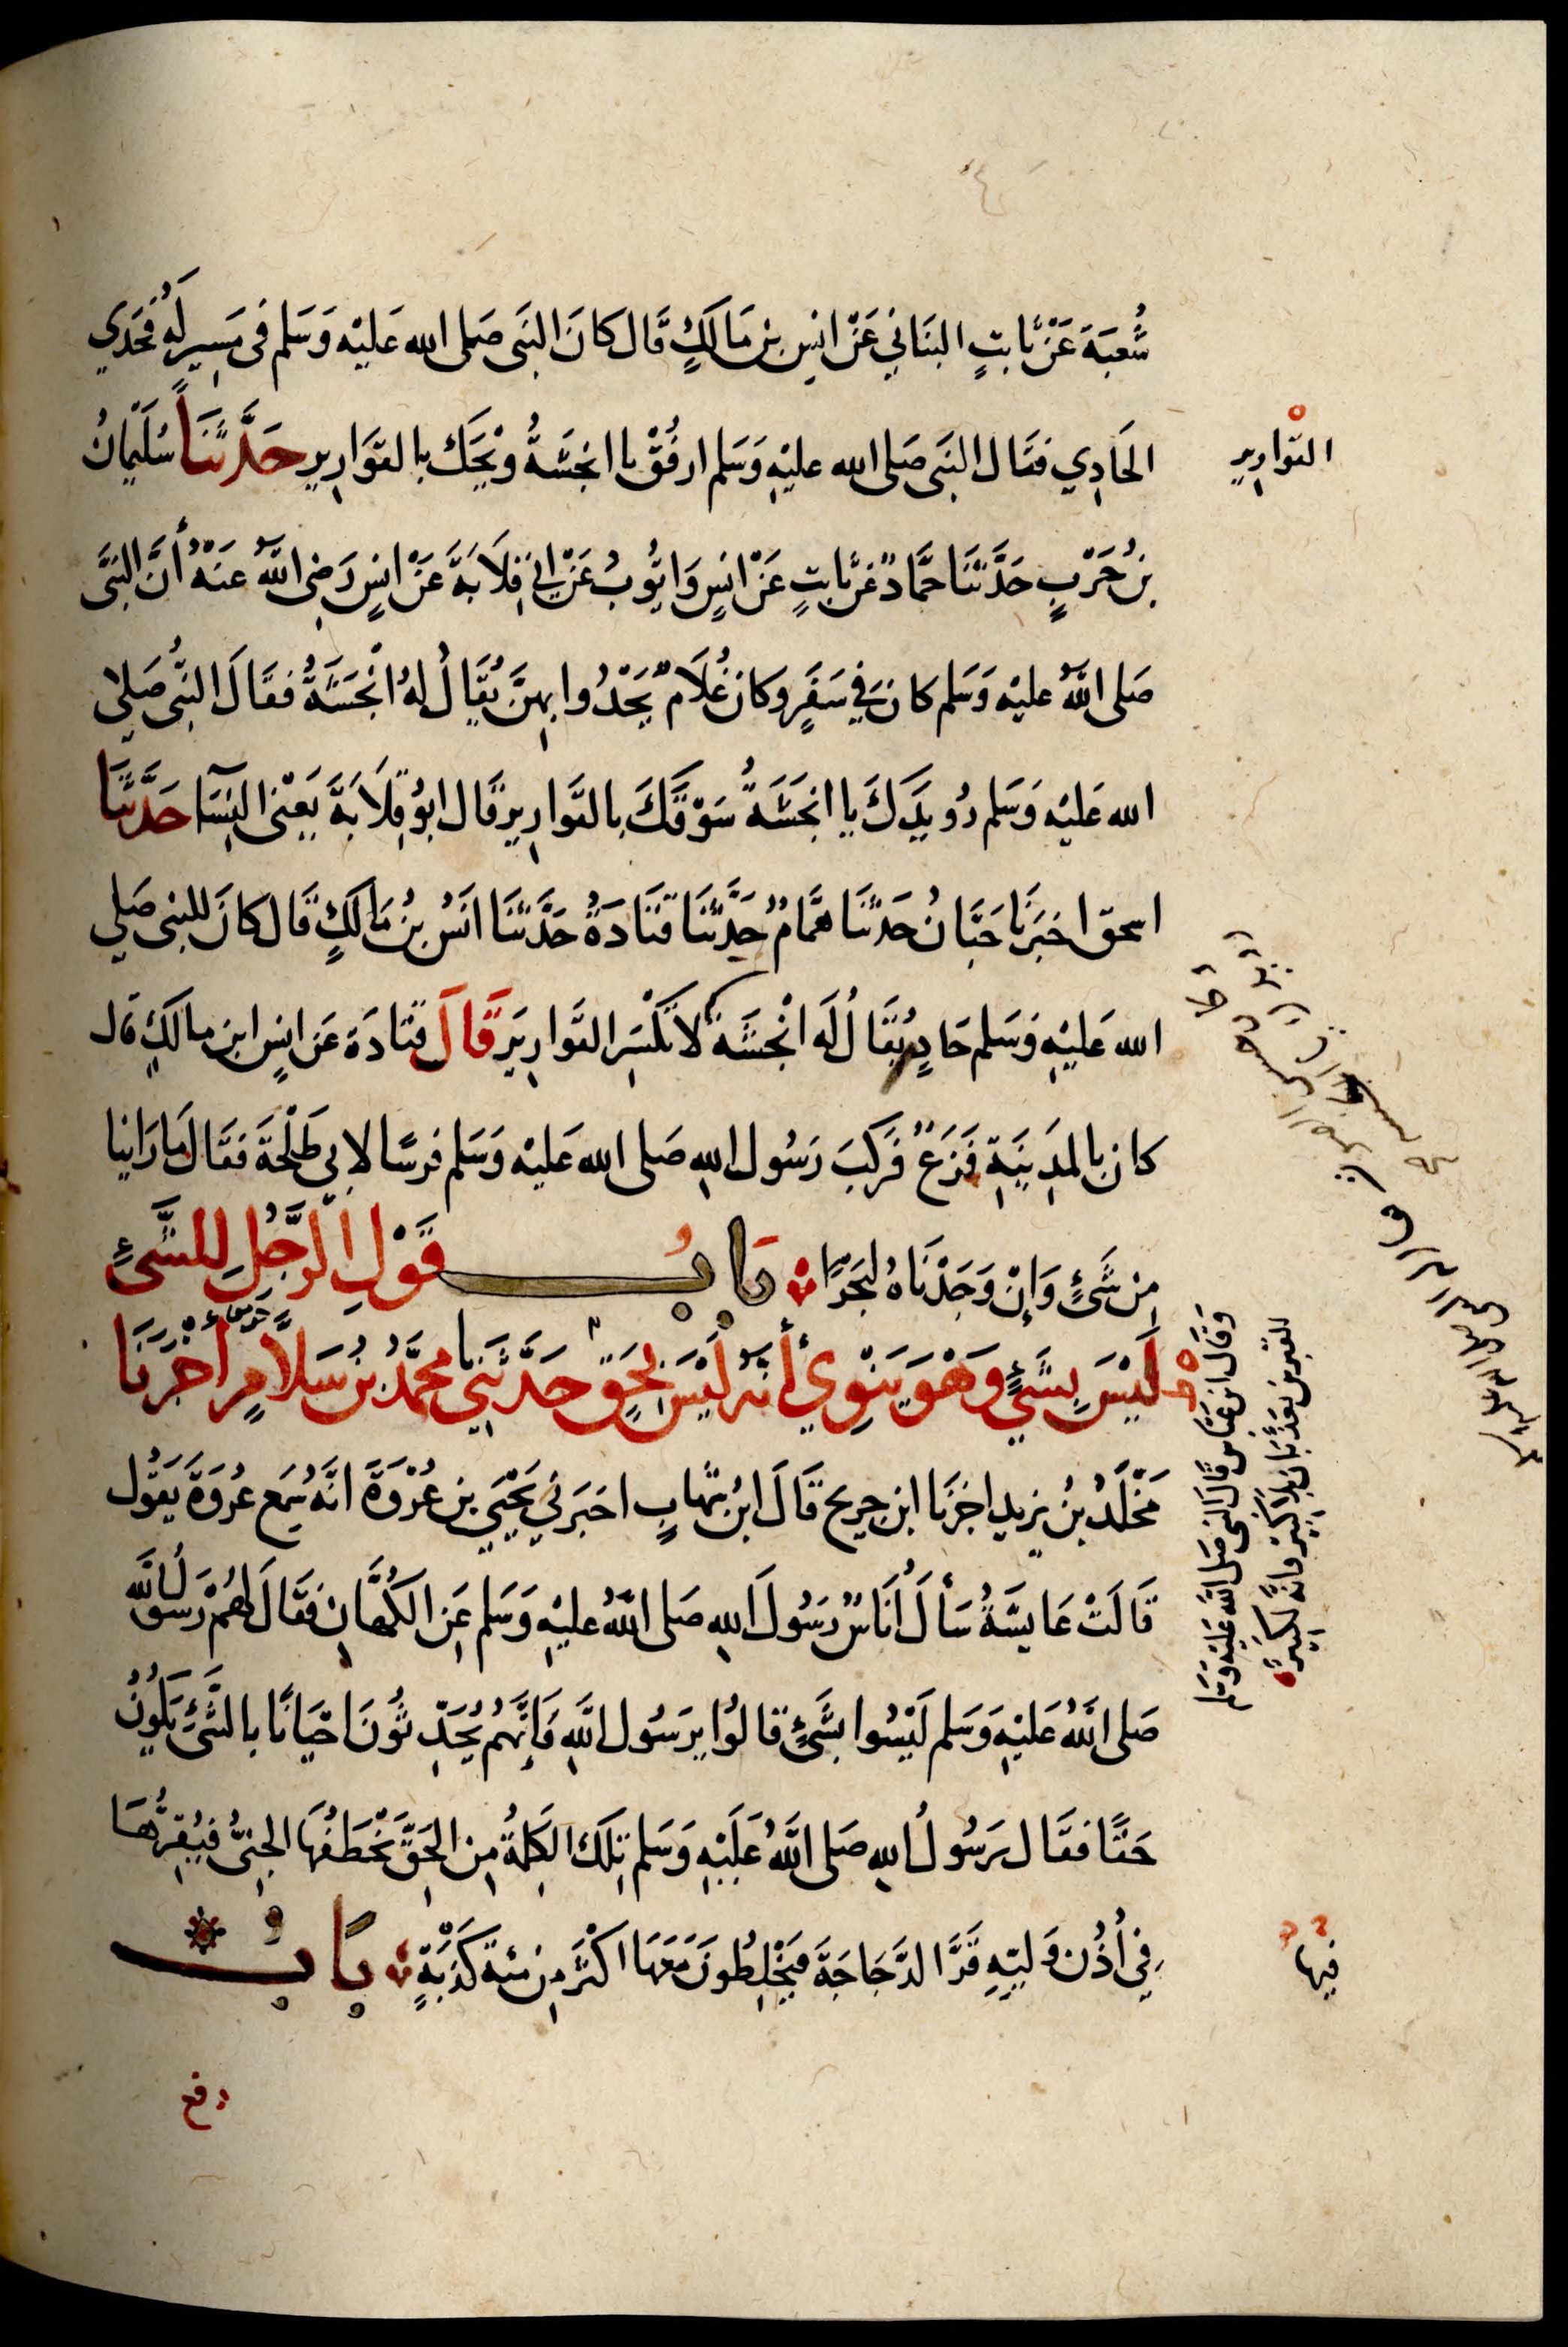 شُعبَةَ عَنْ ثَابتٍ البنَاني عَنْ انسِ بنِ مَالكٍ قَال كانَ النبَى صَلى الله عَليْه وَسَلم فى مَسِيرٍ لَهُ فحَدَي
الحَادِي فقَال النبَى صَلى الله عليْهِ وَسَلم ارفُقْ يا انجَشَةُ ويْحَكَ بالقوَارِيرِ حَدَّثنَا سُلَيْمانُ
بنُ حَرْبٍ حَدَّثنَا حمَّادٌ عَنْ ثابتٍ عَنْ انسٍ وَايُّوبُ عَنْ ابي قِلَابَةَ عَنْ انسٍ رَضِى اللَّهُ عَنهُ أَنَّ النبَّى
صَلى اللَّهُ عليْه وَسَلم كانَ فِي سَفَرٍ وكان غُلَامٌ يَحْدُوا بِهِنَّ يُقَالُ لهُ انْجَشَةُ فقَالَ النبُّى صَلى
الله عَليْه وَسَلم رُوَيْدَكَ يا انجَشَةُ سَوْقَكَ بالقَوارِيرِ قَال ابوُ قِلَابَةَ يَعْنى النِسَآءَ حَدَّثنَا
اسحق اخبَرنَا حَبَّانُ حَدثنَا همَّامٌ حَدَّثنَا قتَادَةُ حَدَّثنَا انَسُ بنُ مَالكٍ قَال كانَ للنبى صَلى
الله عَليْهِ وَسَلم حَادٍ يُقَالُ لَه انْجَشَةُ لا تكْسَرِ القوارِيرَ قَالَ قتادَة عَن انسٍ ابن مالكٍ قال
كان بالمدِينَةِ فَزَعٌ فَرَكبَ رَسُول اللهِ صَلى الله عَليْه وَسَلم فرسًا لابى طَلْحَةَ فقَال مَا رَاينا
مِن شَيْءٍ وَإنْ وَجَدْنَاهُ لبَحْرًا بَابُ قَوْلِ الرَّجُلِ لِلشَّيْءِ
لَيْسَ بِشَيْءٍ وَهْوَ يَنوِي أَنهُ لَيْسَ بِحَقٍّ حَدَّثَنِي محمَّدُ بنُ سَلَامٍ أَخْبَرَنَا
مَخْلَدُ بنُ يزيد اخبَرنَا ابن جريج قَالَ ابنُ شهَابٍ اخبَرَني يَحْيَي بن عُرْوَةَ انَّه سَمِع عُرْوَةَ يَقُول
قَالَتْ عَايشَةُ سَأَلَ أُنَاسٌ رَسُولَ اللهِ صَلى اللَّهُ عليْهِ وَسَلم عَنِ الكُهَّانِ فقَالَ لهُمْ رَسُولُ اللَّه
صَلى اللَّهُ عَليْهِ وَسَلم لَيْسُوا بشَيْءٍ قالوُا يرَسُول اللَّهِ فَإِنَّهُمْ يُحَدِّثوُنَ احْيَانًا بالشَّيْءِ يَكُونُ
حَقًّا فقَال رَسُولُ اللهِ صَلى اللَّهُ عَليْهِ وَسَلم تِلكَ الكَلِمَةُ مِن الحَقِّ يَخْطَفُهَا الجِنىُّ فيُقِرُّهَا
فِي أُذُنِ وَليّهِ قَرَّ الدَّجَاجَةَ فيَخْلِطُونَ مَعَهَا اكثَرَ مِن مئة كَذبَةٍ بَابُ
القوارِيرِ
وَقَال ابن عَبَّاسٍ قال النبى صَلى اللَّه عَليْه وَسَلم
للقبرين يعَذبَانِ بلا كبِيرٍ وَانَّه لكَبِيرٌ
فيها
رفع